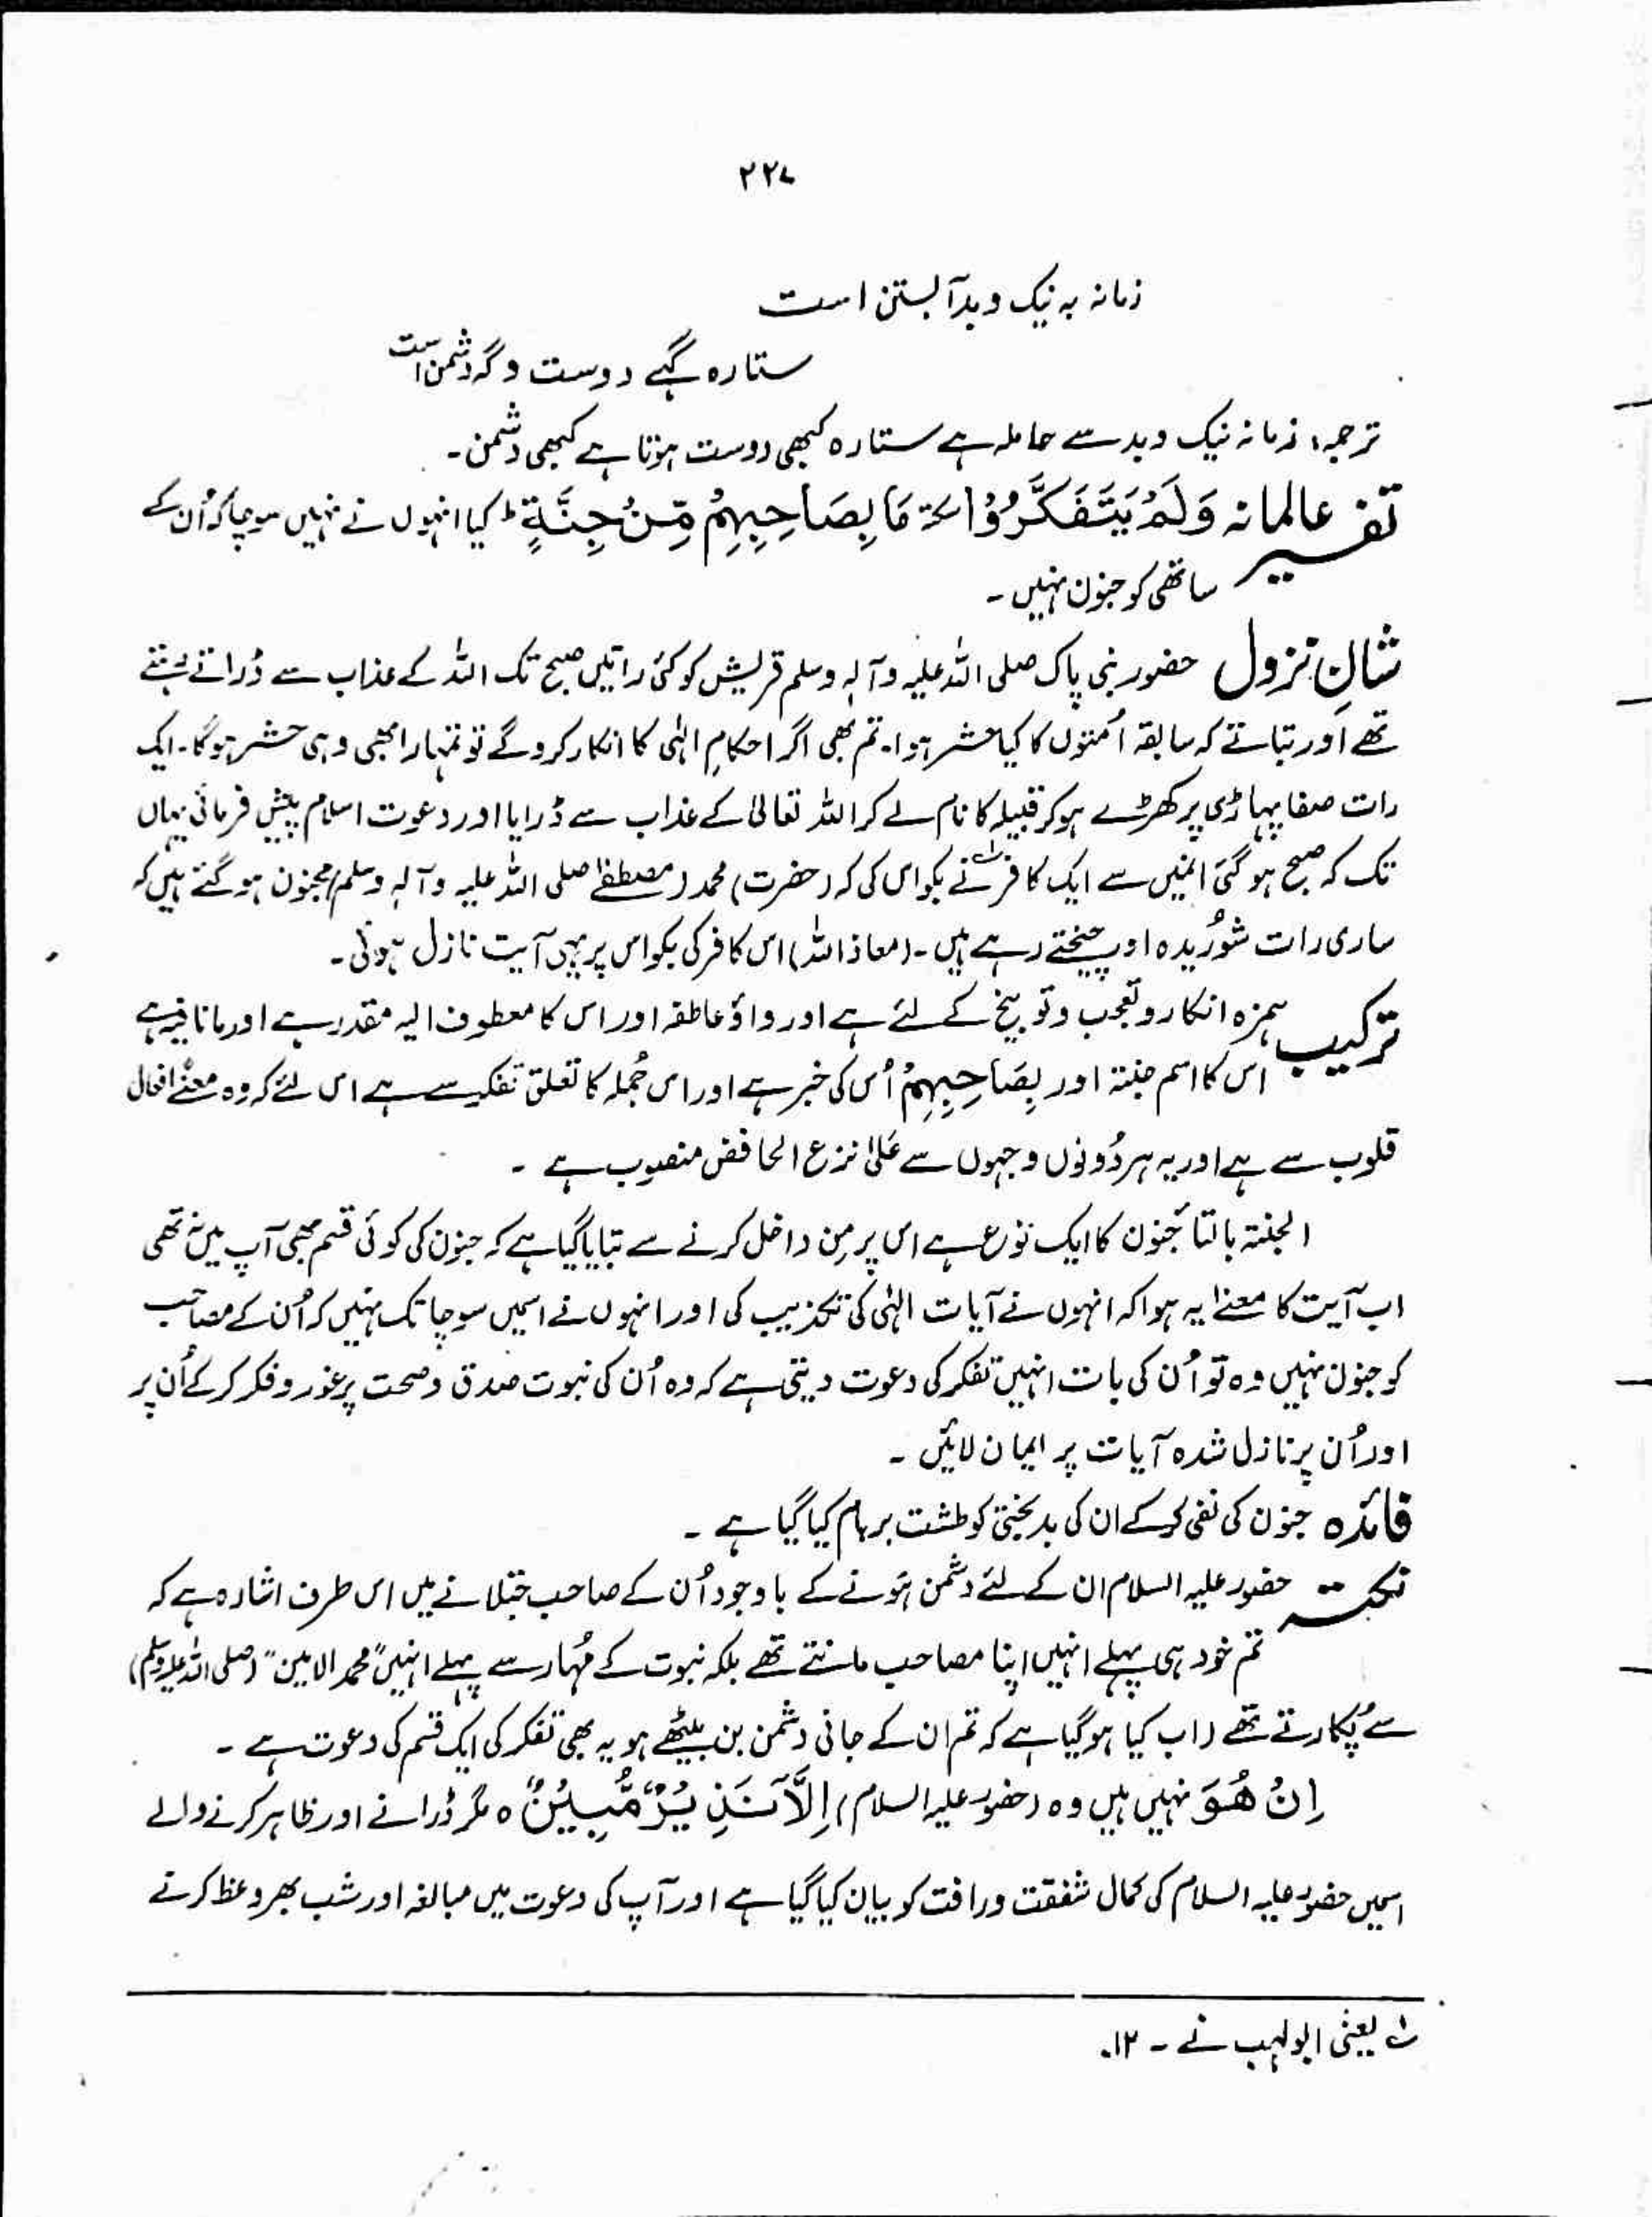 ۲۲۷
زمانہ بہ نیک و بد آبستن است
ستارہ گہے دوست و گہ دشمن است
ترجمہ: زمانہ نیک و بد سے حاملہ ہے ستارہ کبھی دوست ہوتا ہے کبھی دشمن۔
تفسیر عالمانہ وَلَمْ يَتَفَكَّرُوْا سكتہ مَا بِصَاحِبِهِمْ مِّنْ جِنَّةٍ ط کیا انہوں نے نہیں سوچا کہ اُن کے
ساتھی کو جنون نہیں۔
شانِ نزول حضور نبی پاک صلی اللہ علیہ وآلہ وسلم قریش کو کئی راتیں صبح تک اللہ کے عذاب سے ڈراتے رہتے
تھے اور بتاتے کہ سابقہ اُمتوں کا کیا حشر ہوا۔ تم بھی اگر احکامِ الہٰی کا انکار کروگے تو تمہارا بھی وہی حشر ہوگا۔ ایک
رات صفا پہاڑی پر کھڑے ہو کر قبیلہ کا نام لے کر اللہ تعالیٰ کے عذاب سے ڈرایا اور دعوت اسلام پیش فرمائی یہاں
تک کہ صبح ہو گئی انمیں سے ایک کافر ؂۱ نے بکواس کی کہ (حضرت) محمد (مصطفےٰ صلی اللہ علیہ وآلہ وسلم) مجنون ہو گئے ہیں کہ
ساری رات شوُریدہ اور چیختے رہے ہیں۔ (معاذ اللہ) اس کافر کی بکواس پر یہی آیت نازل ہوئی۔
ترکیب ہمزہ انکار و تعجب و توبیخ کے لئے ہے اور واؤ عاطفہ اور اس کا معطوف الیہ مقدر ہے اور ما نافیہ ہے
اس کا اسم جنتہ اور بِصَاحِبِهِمْ اُس کی خبر ہے اور اس جُملہ کا تعلق تفکر سے ہے اس لئے کہ وہ معنےٰ افعال
قلوب سے ہے اور یہ ہر دُونوں وجہوں سے عَلیٰ نزع الخافض منصوب ہے ۔
الجنتہ بالتا جُنون کا ایک نوع ہے اس پر مِن داخل کرنے سے بتایا گیا ہے کہ جنون کی کوئی قسم بھی آپ میں نہ تھی
اب آیت کا معنےٰ یہ ہوا کہ انہوں نے آیات الہٰی کی تکذیب کی اور انہوں نے اسمیں سوچا تک نہیں کہ اُن کے مصاحب
کو جنون نہیں وہ تو اُن کی بات انہیں تفکر کی دعوت دیتی ہے کہ وہ اُن کی نبوت صدق و صحت پر غور و فکر کر کے اُن پر
اور اُن پر نازل شدہ آیات پر ایمان لائیں ۔
فائدہ جنون کی نفی کر کے ان کی بدبختی کو طشت بربام کیا گیا ہے ۔
نکتہ حضور علیہ السلام ان کے لئے دشمن ہونے کے باوجود اُن کے صاحب جتلانے میں اس طرف اشارہ ہے کہ
تم خود ہی پہلے انہیں اپنا مصاحب مانتے تھے بلکہ نبوت کے مُہار سے پہلے انہیں "محمد الامین" (صلی اللہ علیہ وسلم)
سے پُکارتے تھے (اب کیا ہو گیا ہے کہ تم ان کے جانی دشمن بن بیٹھے ہو یہ بھی تفکر کی ایک قسم کی دعوت ہے ۔
اِنْ هُوَ نہیں ہیں وہ (حضور علیہ السلام) اِلَّا نَذِيْرٌ مُّبِيْنٌ ہ مگر ڈرانے اور ظاہر کرنے والے
اسمیں حضور علیہ السلام کی کمال شفقت و رافت کو بیان کیا گیا ہے اور آپ کی دعوت میں مبالغہ اور شب بھر وعظ کرتے
؂۱ یعنی ابولہب نے ۔ ۱۲.